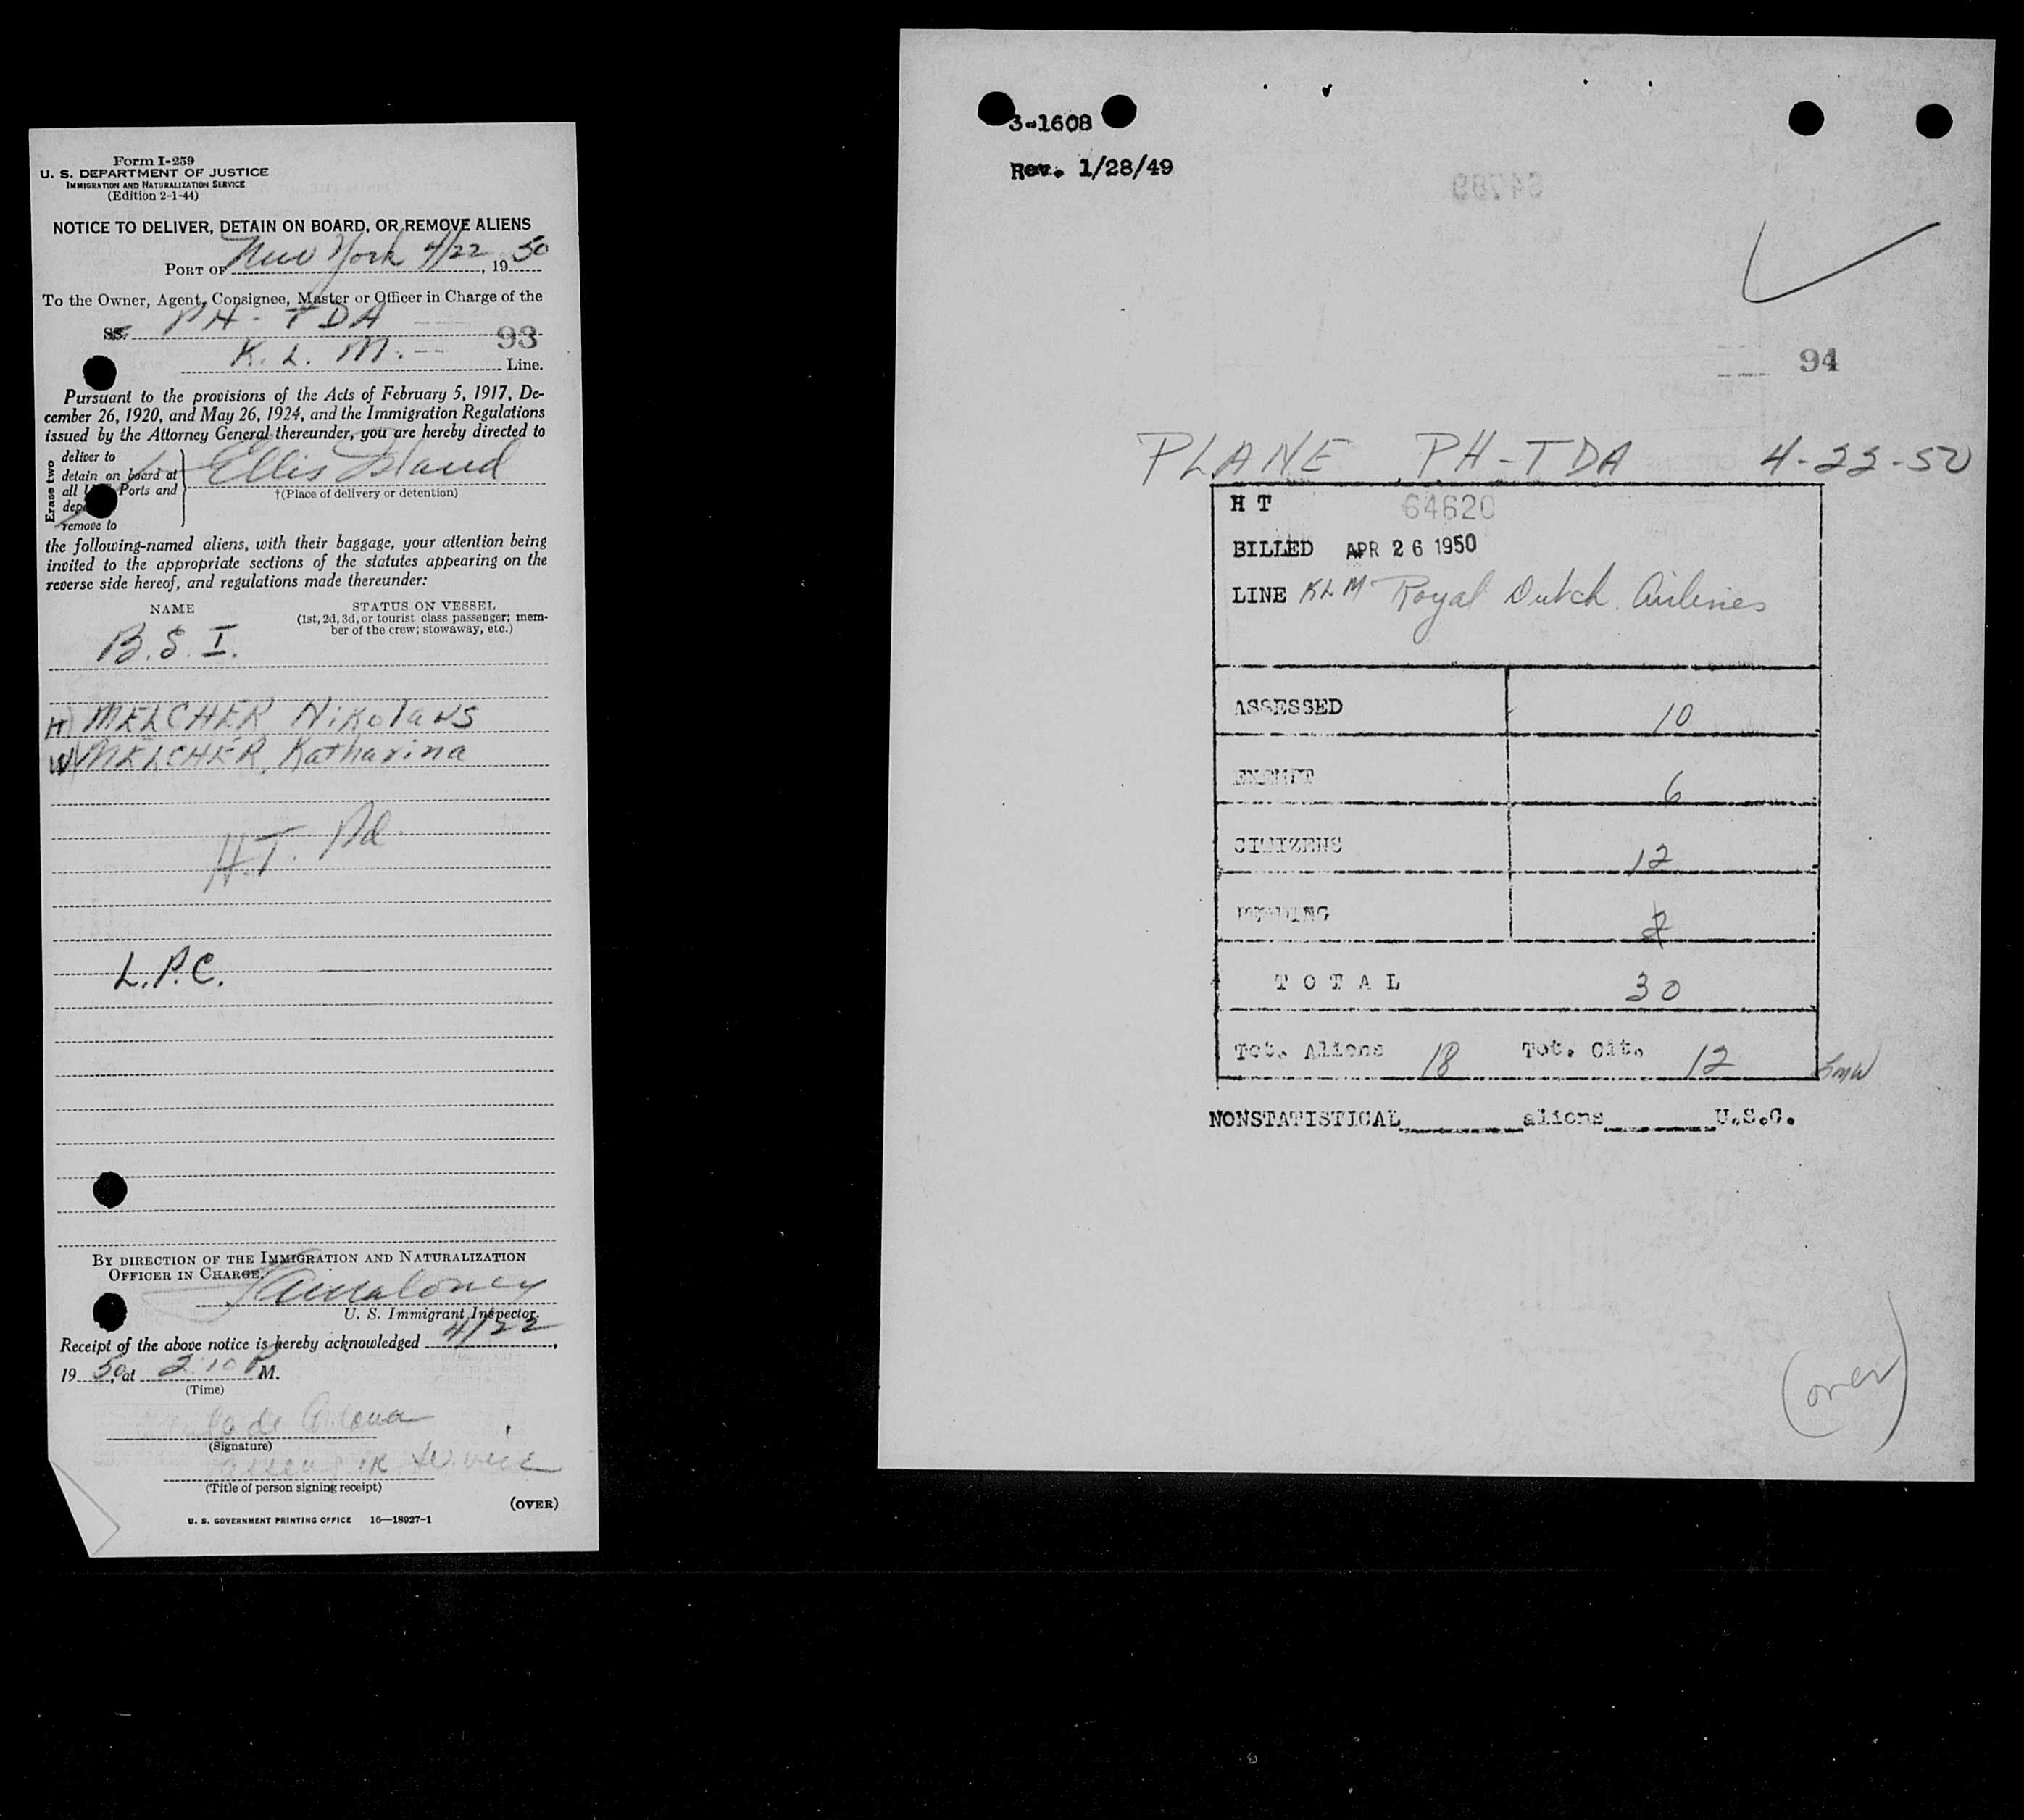 Form I-259
U. S. DEPARTMENT OF JUSTICE
IMMIGRATION AND NATURALIZATION SERVICE
(Edition 2-1-44)
NOTICE TO DELIVER, DETAIN ON BOARD, OR REMOVE ALIENS
PORT OF New York 4/22, 1950
To the Owner, Agent, Consignee, Master or Officer in Charge of the
SS. PH-TDA
93
K. L. M. Line.
Pursuant to the provisions of the Acts of February 5, 1917, De-
cember 26, 1920, and May 26, 1924, and the Immigration Regulations
issued by the Attorney General thereunder, you are hereby directed to
Erase two
deliver to
detain on board at
all Ports and
remove to
Ellis Island
†(Place of delivery or detention)
the following-named aliens, with their baggage, your attention being
invited to the appropriate sections of the statutes appearing on the
reverse side hereof, and regulations made thereunder:
NAME
STATUS ON VESSEL
(1st, 2d, 3d, or tourist class passenger; mem-
ber of the crew; stowaway, etc.)
B. S. I.
H) MELCHER Nikolaus
W) MELCHER, Katharina
H.T. Pd.
L.P.C.
BY DIRECTION OF THE IMMIGRATION AND NATURALIZATION
OFFICER IN CHARGE.
Maloney
U. S. Immigrant Inspector.
Receipt of the above notice is hereby acknowledged 4/22,
1950, at 2:10 P M.
(Time)
de
(Signature)
Passenger Service
(Title of person signing receipt)
(OVER)
U. S. GOVERNMENT PRINTING OFFICE 16—18927-1
3-1608
Rev. 1/28/49
94
PLANE PH-TDA 4-22-50
H T 64620
BILLED APR 26 1950
LINE KLM Royal Dutch Airlines
ASSESSED 10
EXEMPT 6
CITIZENS 12
PENDING 2
TOTAL 30
Tot. Aliens 18 Tot. Cit. 12
NONSTATISTICAL aliens U.S.C.
(over)